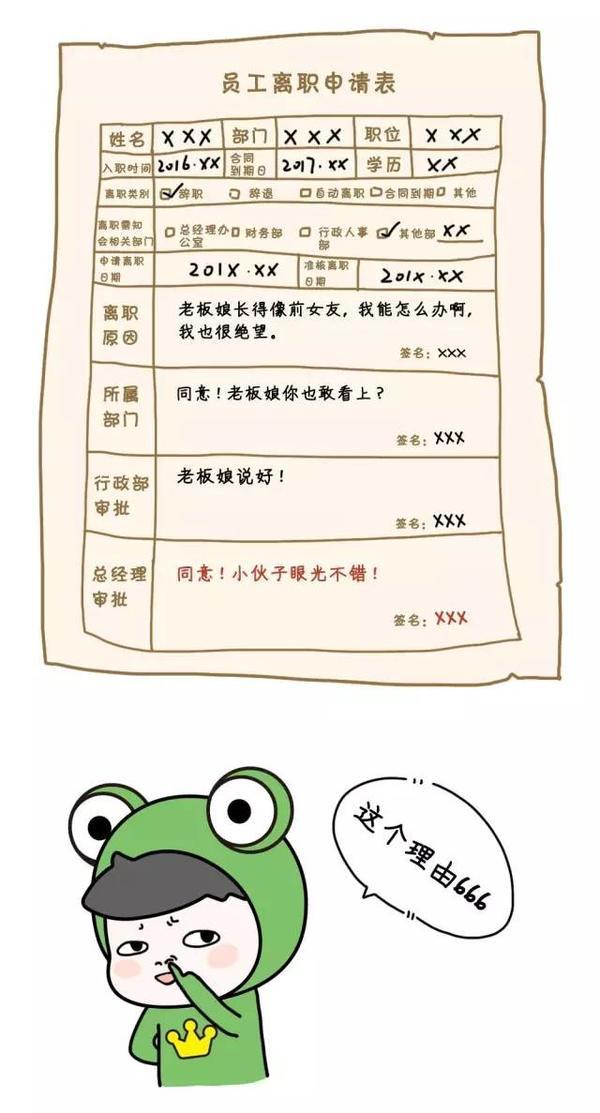 员工离职申请表
姓名 XXX 部门 XXX 职位 XXX
入职时间 2016.XX 合同到期日 2017.XX 学历 XX
离职类别 辞职 辞退 自动离职 合同到期 其他
离职需知会相关部门 总经理办公室 财务部 行政人事部 其他部 XX
申请离职日期 201X.XX 准核离职日期 201X.XX
离职原因
老板娘长得像前女友，我能怎么办啊，
我也很绝望。
签名：XXX
所属部门
同意！老板娘你也敢看上？
签名：XXX
行政部审批
老板娘说好！
签名：XXX
总经理审批
同意！小伙子眼光不错！
签名：XXX
这个理由666